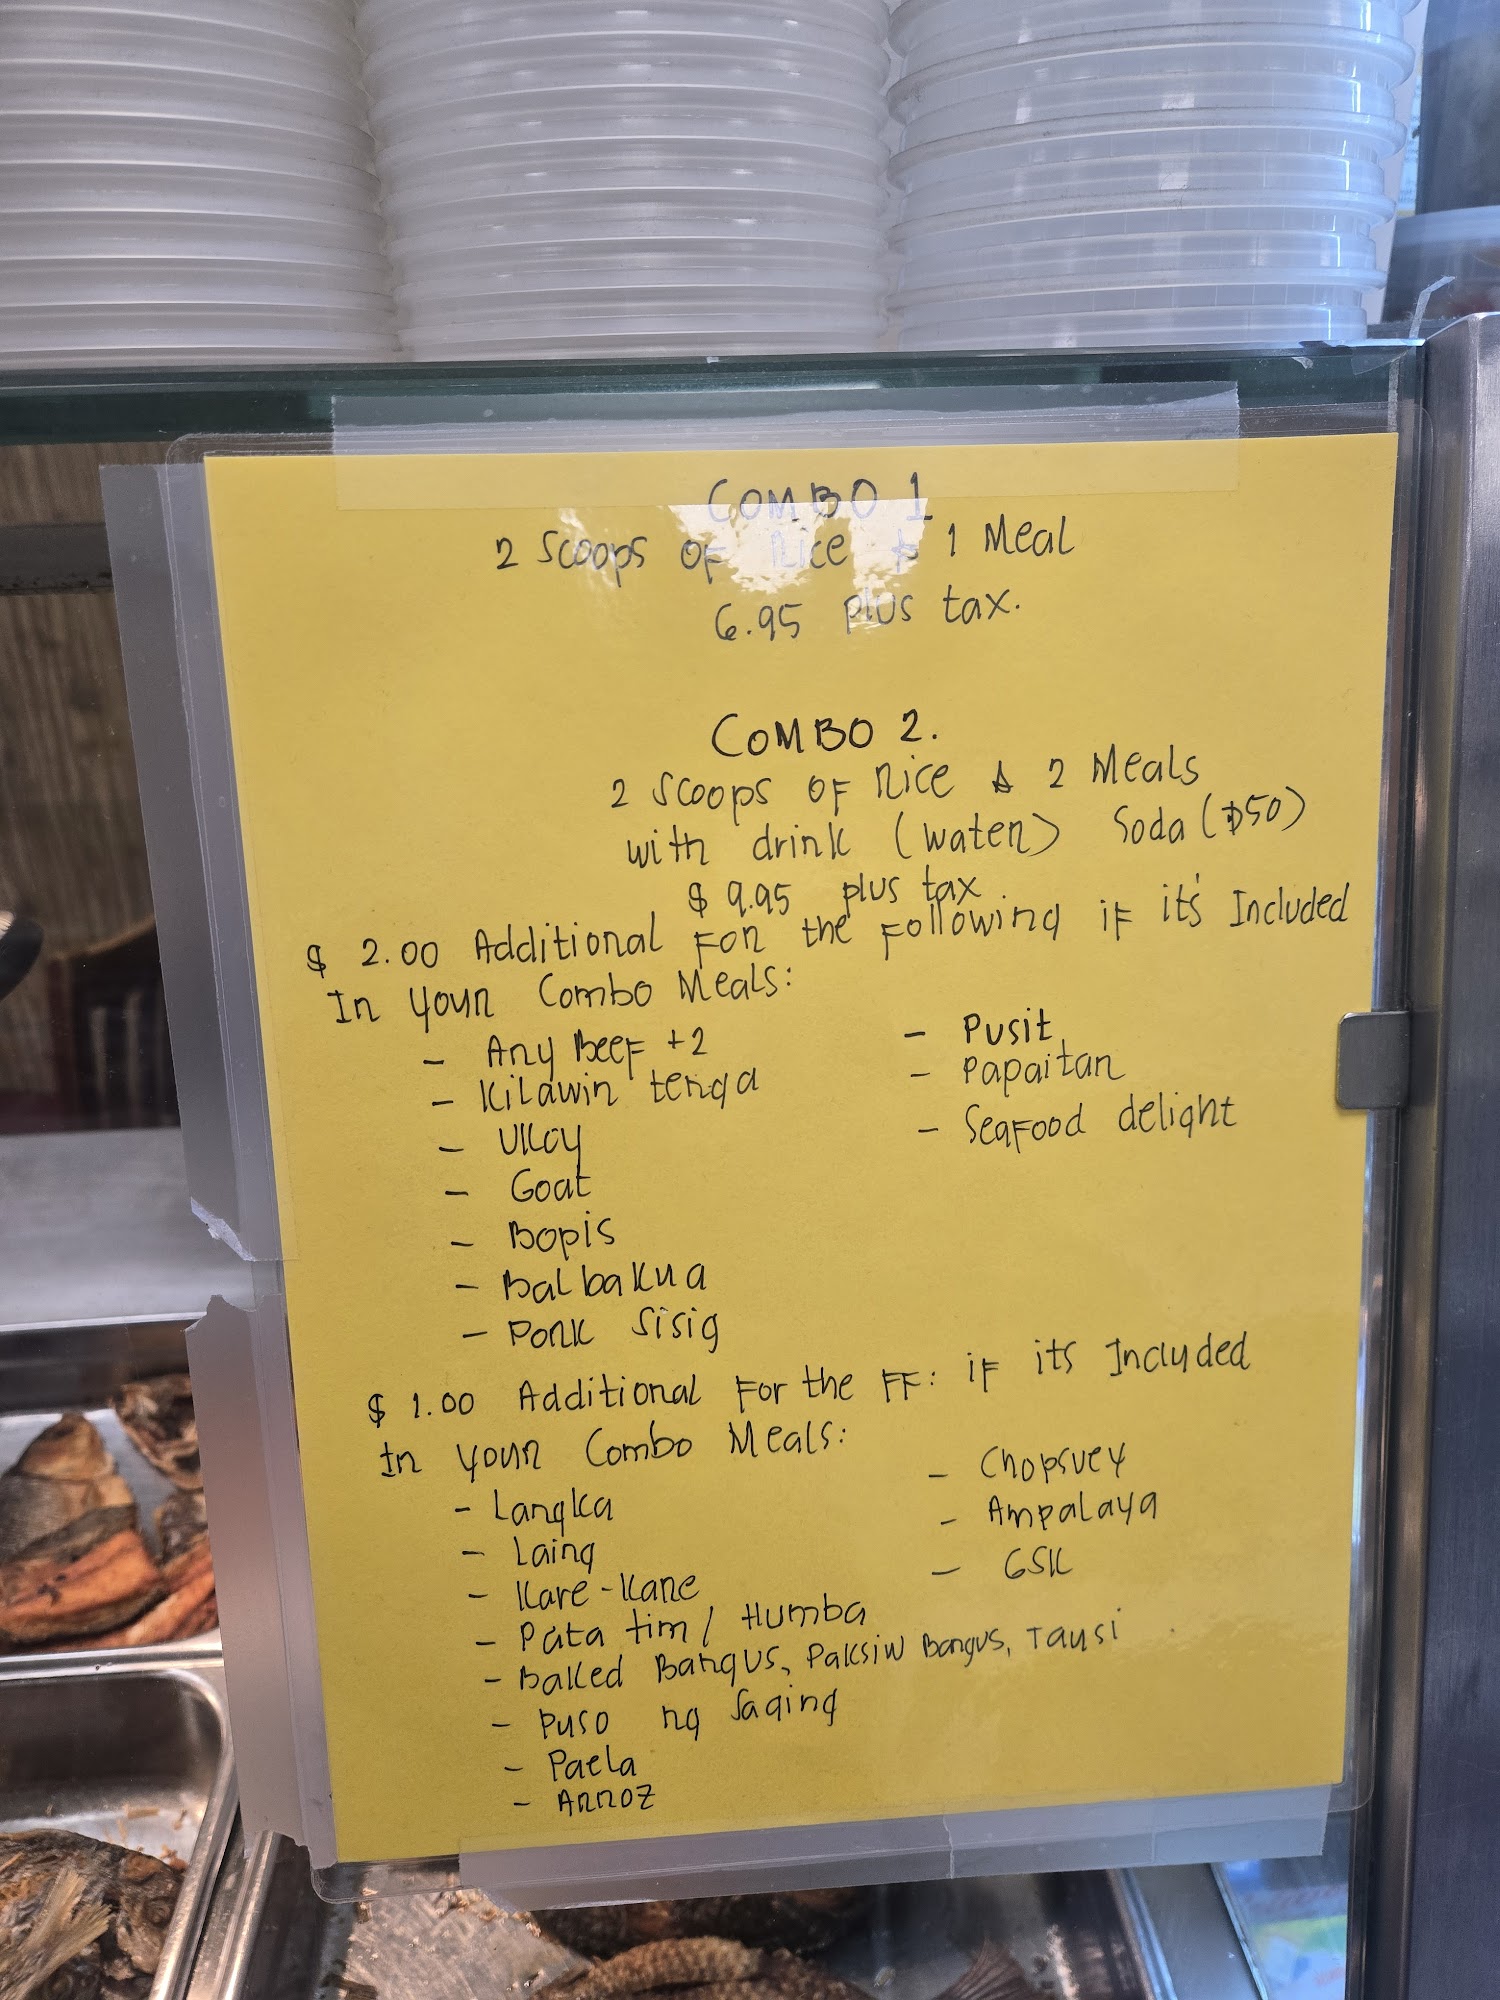 COMBO 1
2 Scoops OF Rice & 1 Meal
6.95 plus tax.
COMBO 2.
2 Scoops OF Rice & 2 Meals
with drink (water) Soda ($50)
$ 9.95 plus tax
$ 2.00 Additional For the Following iF it's Included
In Your Combo Meals:
- Any BeeF +2
- Kilawin tenga
- Ukoy
- Goat
- Bopis
- Balbakua
- Pork Sisig
- Pusit
- Papaitan
- SeaFood delight
$ 1.00 Additional For the FF: iF its Included
In Your Combo Meals:
- Langka
- Laing
- Kare-Kare
- Pata tim / Humba
- Baked Bangus, Paksiw Bangus, Tausi
- Puso ng Saging
- Paela
- Arroz
- Chopsuey
- Ampalaya
- GSK